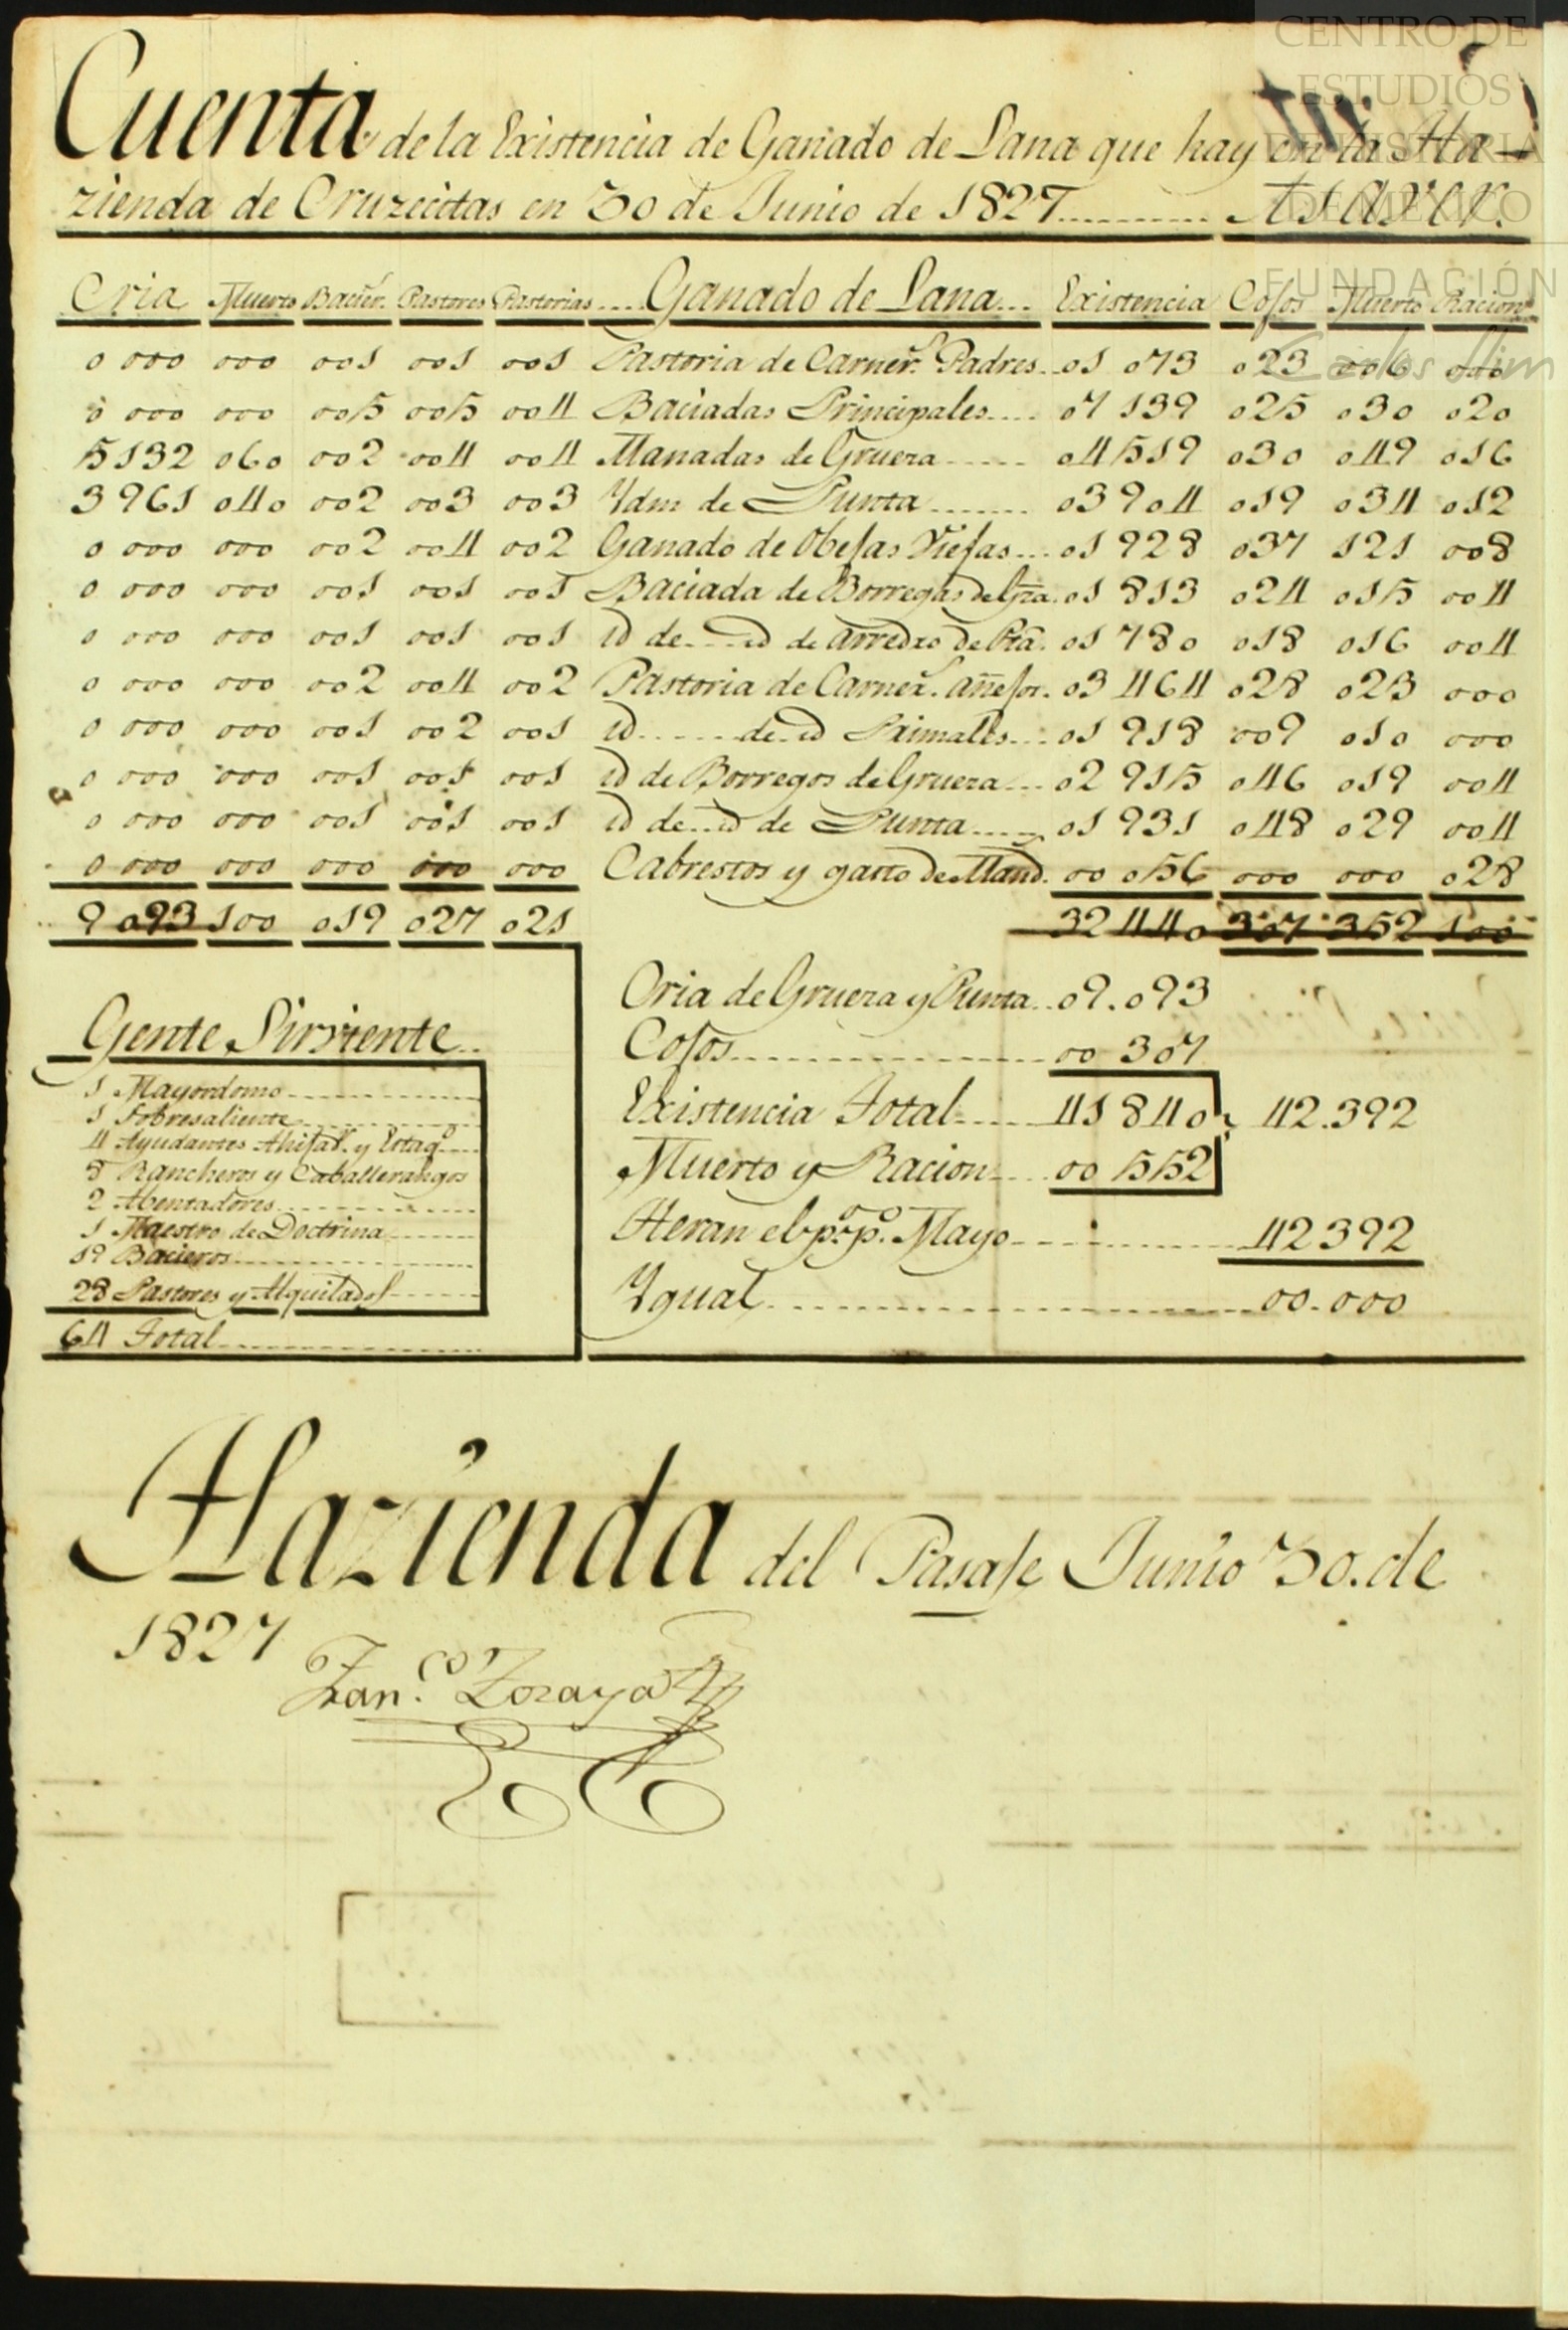 Cuenta de la Existencia de Ganado de Lana que hay en la Ha-
zienda de Cruzecitas en 30 de Junio de 1827
Cria Muerto Bacier.s Pastores Pastorias Ganado de Lana Existencia Cojos Muerto Racion
0 000 000 001 001 001 Pastoria de Carner.s Padres 01 073 023 006 000
0 000 000 005 005 004 Baciadas Principales 07 139 025 030 020
5 132 060 002 004 004 Manadas de Grueza 04 519 030 049 016
3 961 040 002 003 003 Ydm de Punta 03 904 019 034 012
0 000 000 002 004 002 Ganado de Obejas Viejas 01 928 037 121 008
0 000 000 001 001 001 Baciada de Borregas de Gza. 01 813 024 015 004
0 000 000 001 001 001 id de id de arredro de Pta. 01 780 018 016 004
0 000 000 002 004 002 Pastoria de Carner.s añejos. 03 464 028 023 000
0 000 000 001 002 001 id de id Primales 01 918 009 010 000
0 000 000 001 001 001 id de Borregos de Grueza 02 915 046 019 004
0 000 000 001 001 001 id de id de Punta 01 931 048 029 004
0 000 000 000 000 000 Cabrestos y gasto de Mand. 00 056 000 000 028
9 093 100 019 027 021 32 440 307 352 100
Cria de Grueza y Punta 09.093
Cojos 00 307
Existencia Total 41 840 42.392
Muerto y Racion 00 552
Heran el p.o p.o Mayo 42392
Ygual 00.000
Gente Sirviente
1 Mayordomo
1 Sobresaliente
4 Ayudantes Ahijad.s y Estaq.o
8 Rancheros y Caballerangos
2 Abentadores
1 Maestro de Doctrina
19 Bacieros
28 Pastores y Alquilados
64 Total
Hazienda del Pasaje Junio 30. de
1827
Fran.co Zoraya
CENTRO DE
ESTUDIOS
DE HISTORIA
DE MÉXICO
FUNDACIÓN
Carlos Slim